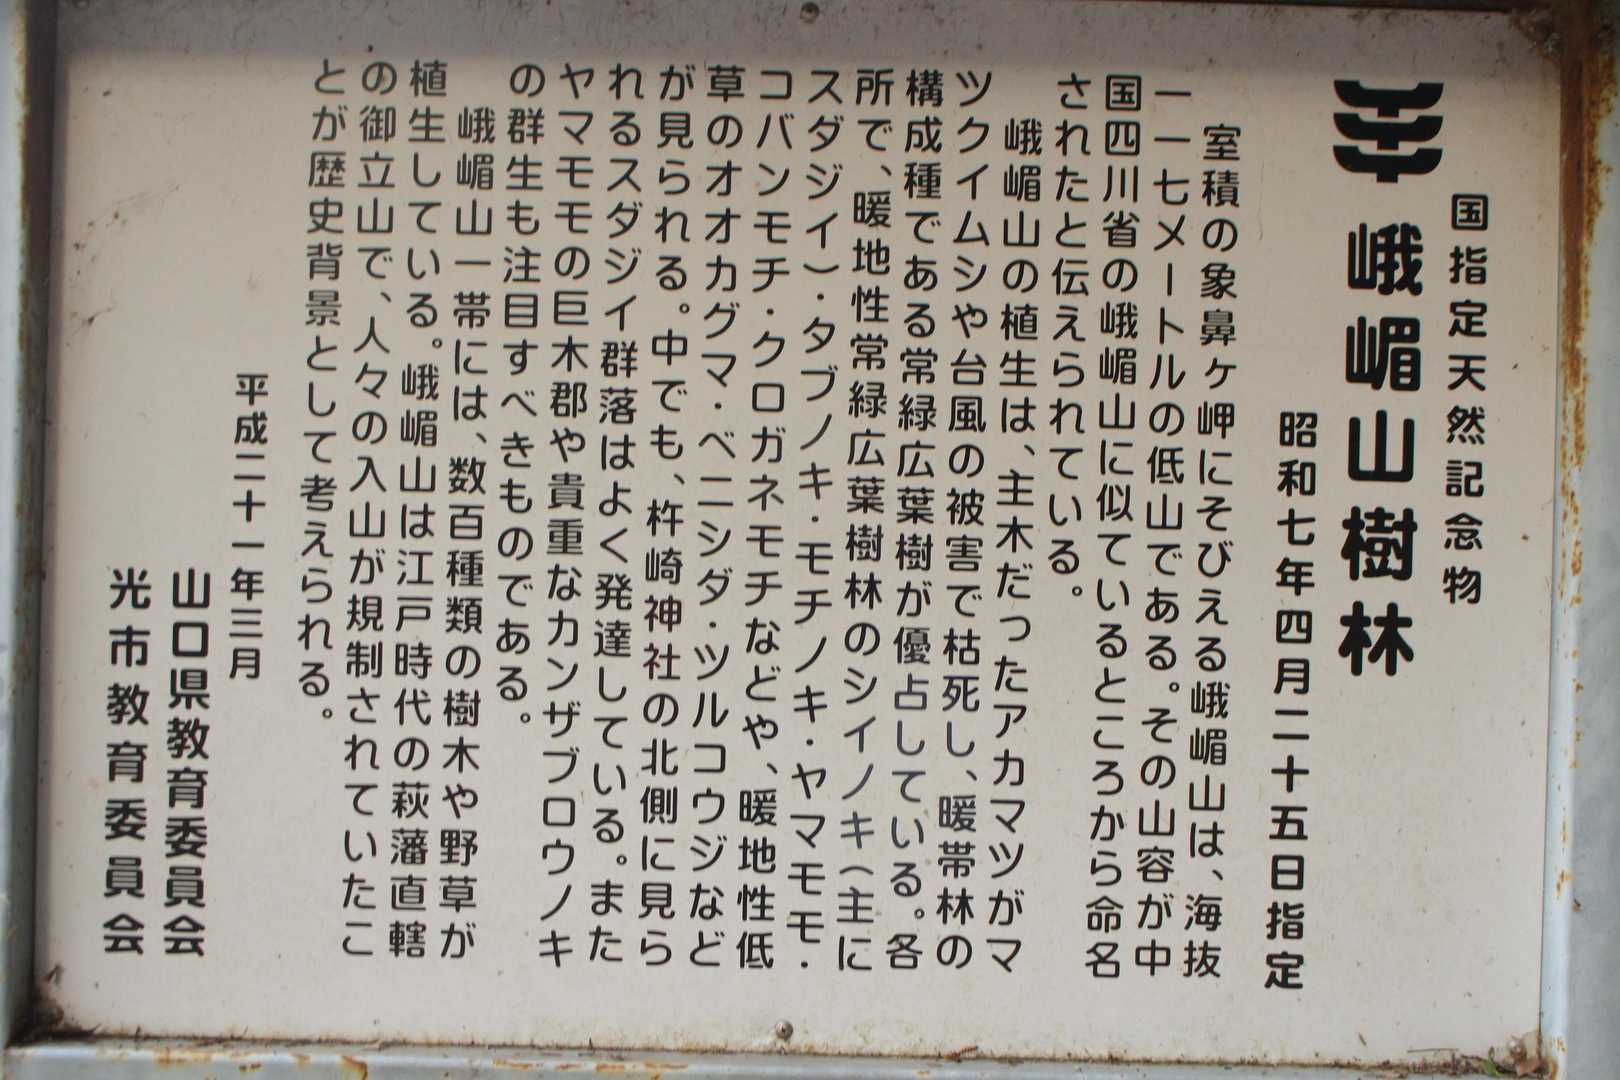 国指定天然記念物
峨嵋山樹林
昭和七年四月二十五日指定
室積の象鼻ヶ岬にそびえる峨嵋山は、海抜
一一七メートルの低山である。その山容が中
国四川省の峨嵋山に似ているところから命名
されたと伝えられている。
峨嵋山の植生は、主木だったアカマツがマ
ツクイムシや台風の被害で枯死し、暖帯林の
構成種である常緑広葉樹が優占している。各
所で、暖地性常緑広葉樹林のシイノキ(主に
スダジイ)・タブノキ・モチノキ・ヤマモモ・
コバンモチ・クロガネモチなどや、暖地性低
草のオオカグマ・ベニシダ・ツルコウジなど
が見られる。中でも、杵崎神社の北側に見ら
れるスダジイ群落はよく発達している。また
ヤマモモの巨木郡や貴重なカンザブロウノキ
の群生も注目すべきものである。
峨嵋山一帯には、数百種類の樹木や野草が
植生している。峨嵋山は江戸時代の萩藩直轄
の御立山で、人々の入山が規制されていたこ
とが歴史背景として考えられる。
平成二十一年三月
山口県教育委員会
光市教育委員会